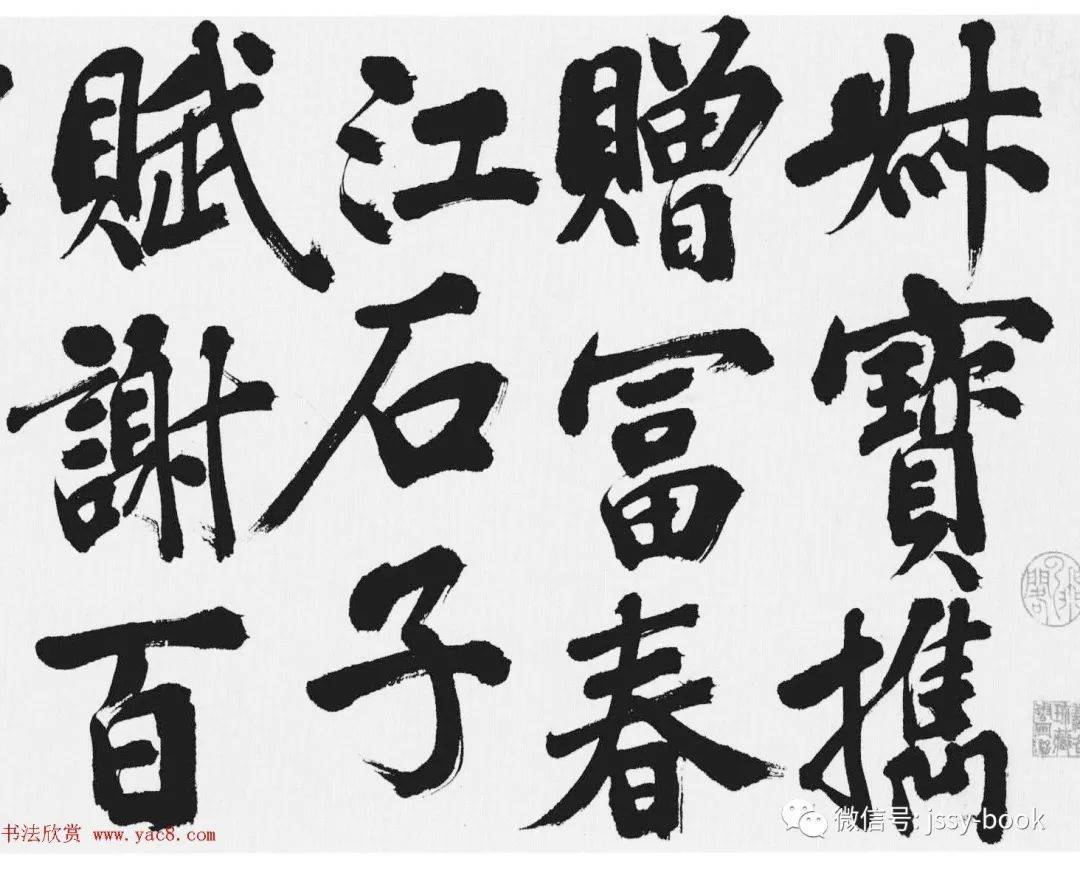 叔寶攜
贈冨春
江石子
賦謝百
书法欣赏 www.yac8.com
微信号: jssy-book